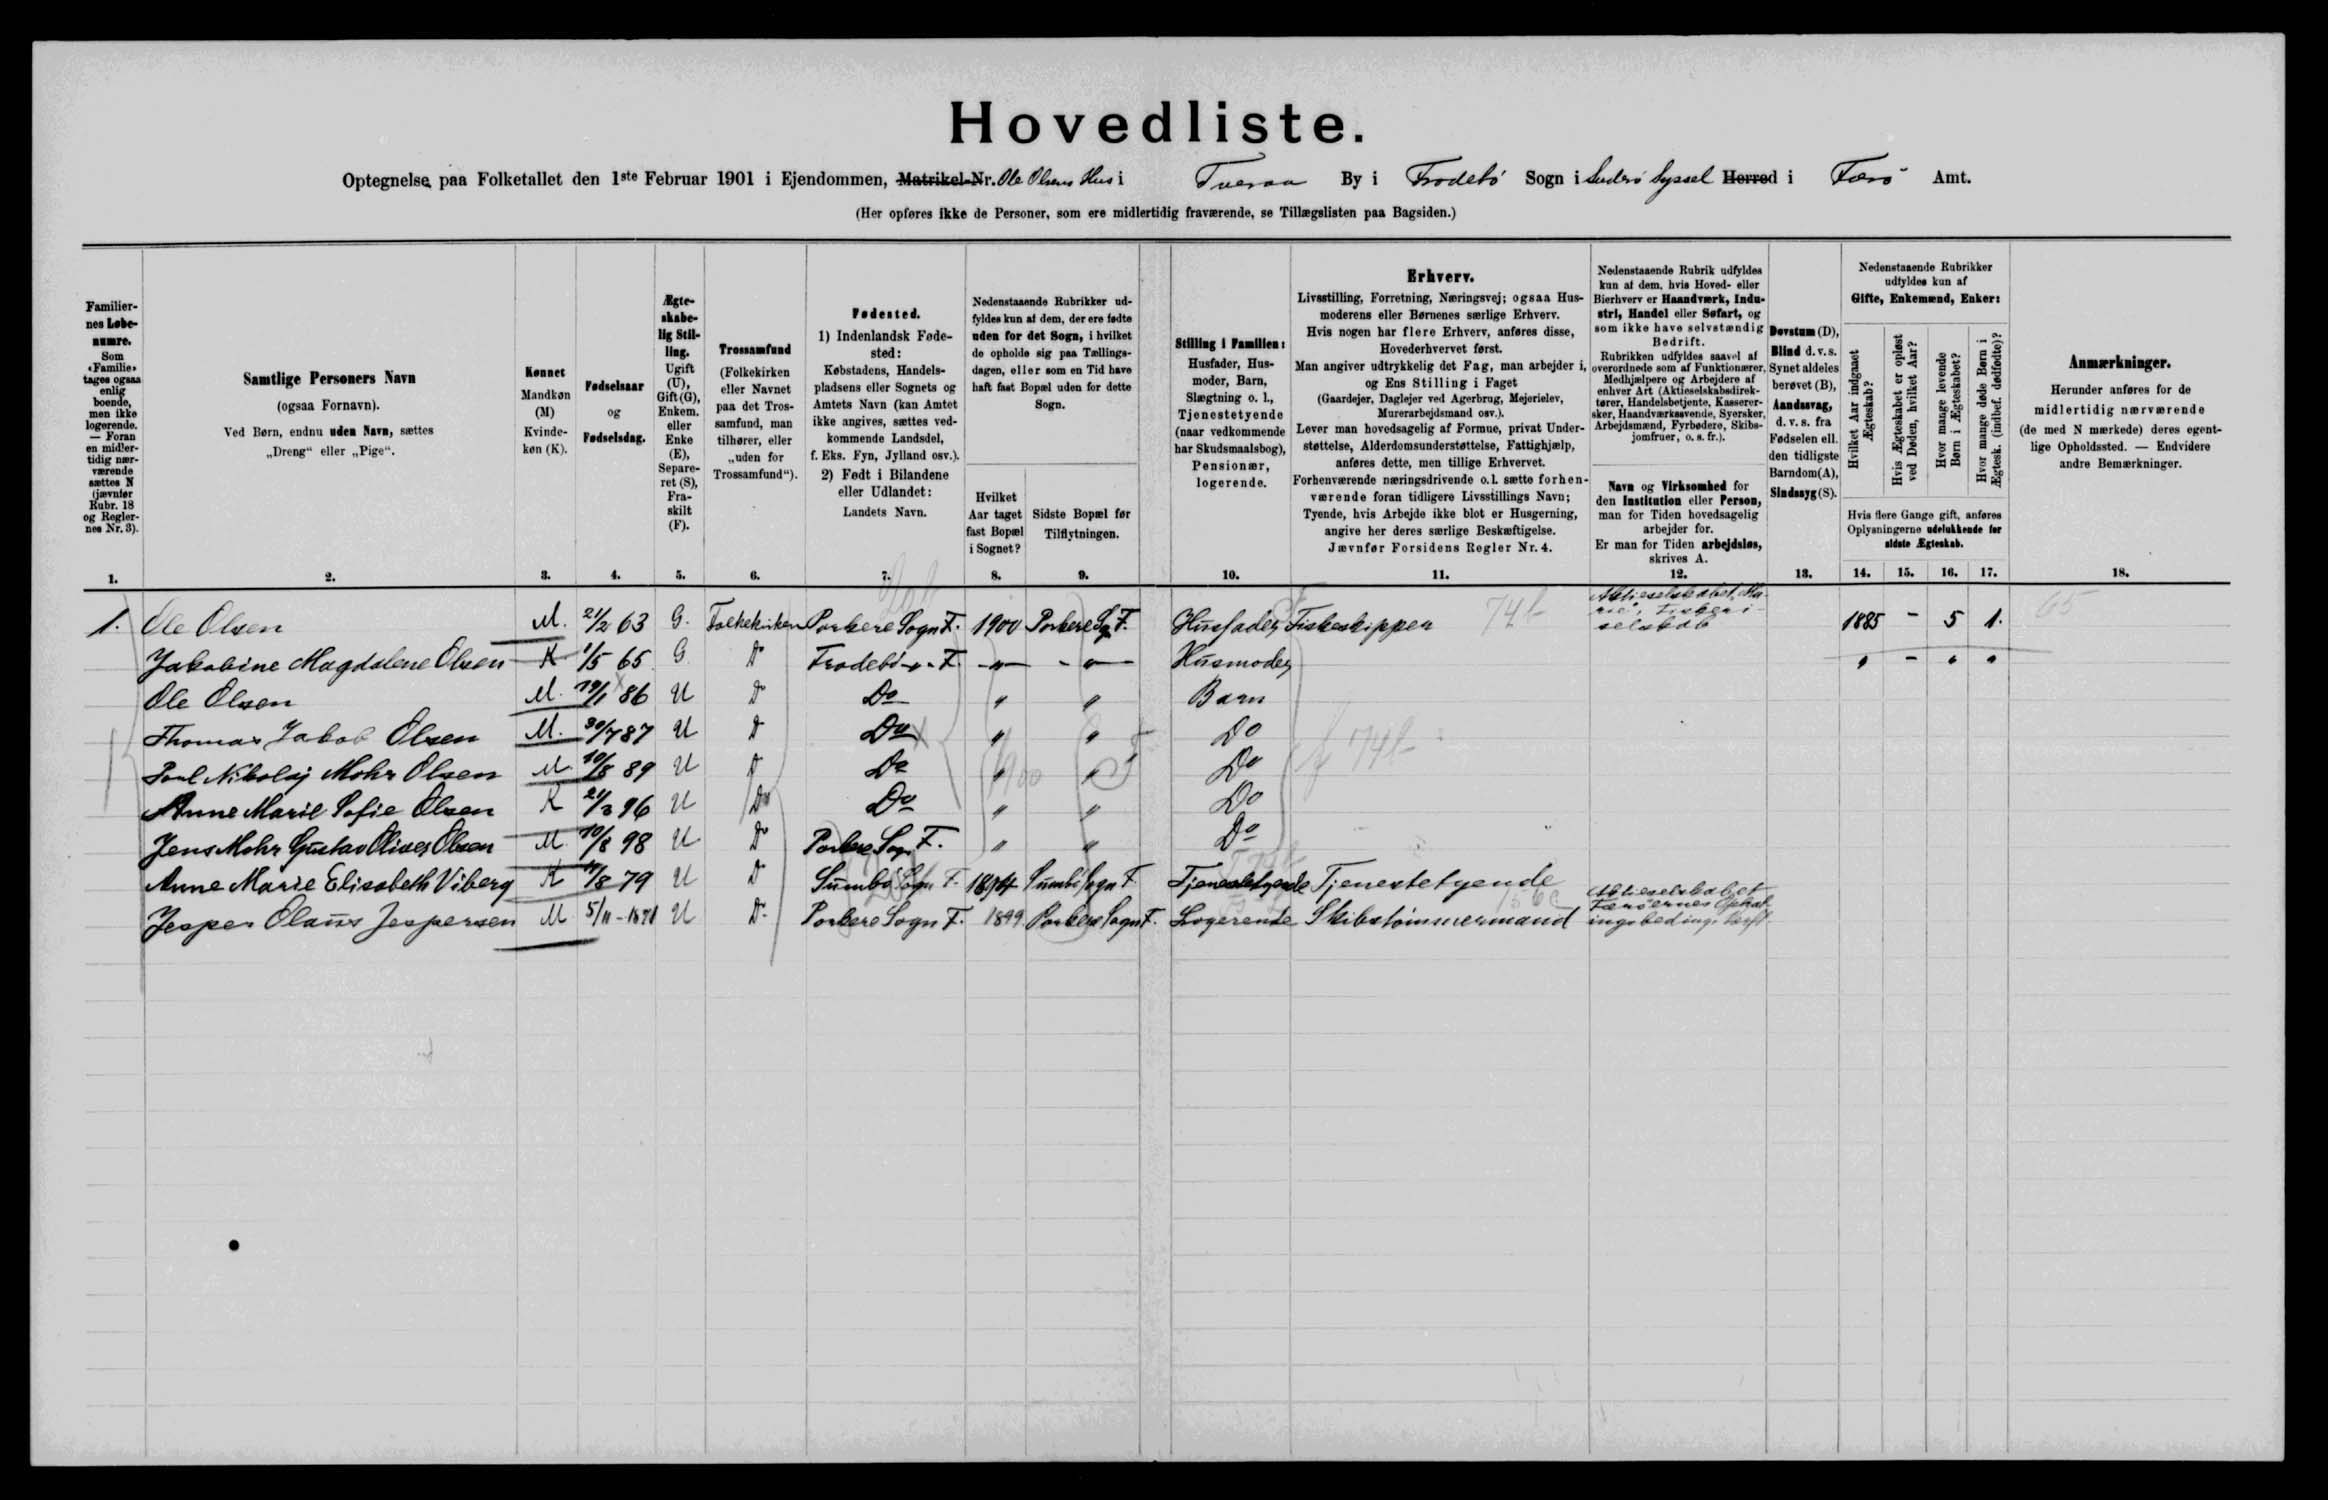 Hovedliste.
Optegnelse paa Folketallet den 1ste Februar 1901 i Ejendommen, Matrikel-Nr. Ole Olsens Hus i Tveraa By i Frodebö Sogn i Suderö Syssel Herred i Færö Amt.
(Her opføres ikke de Personer, som ere midlertidig fraværende, se Tillægslisten paa Bagsiden.)
Familier-
nes Løbe-
numre.
Som
«Familie»
tages ogsaa
enlig
boende,
men ikke
logerende.
— Foran
en midler-
tidig nær-
værende
sættes N
(jævnfør
Rubr. 18
og Regler-
nes Nr. 3).
1.
Samtlige Personers Navn
(ogsaa Fornavn).
Ved Børn, endnu uden Navn, sættes
„Dreng" eller „Pige".
2.
Kønnet
Mandkøn
(M)
Kvinde-
køn (K).
3.
Fødselsaar
og
Fødselsdag.
4.
Ægte-
skabe-
lig Stil-
ling.
Ugift
(U),
Gift (G),
Enkem.
eller
Enke
(E),
Separe-
ret (S),
Fra-
skilt
(F).
5.
Trossamfund
(Folkekirken
eller Navnet
paa det Tros-
samfund, man
tilhører, eller
„uden for
Trossamfund").
6.
Fødested.
1) Indenlandsk Føde-
sted:
Købstadens, Handels-
pladsens eller Sognets og
Amtets Navn (kan Amtet
ikke angives, sættes ved-
kommende Landsdel,
f. Eks. Fyn, Jylland osv.).
2) Født i Bilandene
eller Udlandet:
Landets Navn.
7.
Nedenstaaende Rubrikker ud-
fyldes kun af dem, der ere fødte
uden for det Sogn, i hvilket
de opholde sig paa Tællings-
dagen, eller som en Tid have
haft fast Bopæl uden for dette
Sogn.
Hvilket
Aar taget
fast Bopæl
i Sognet?
8.
Sidste Bopæl før
Tilflytningen.
9.
Stilling i Familien:
Husfader, Hus-
moder, Barn,
Slægtning o. l.,
Tjenestetyende
(naar vedkommende
har Skudsmaalsbog),
Pensionær,
logerende.
10.
Erhverv.
Livsstilling, Forretning, Næringsvej; ogsaa Hus-
moderens eller Børnenes særlige Erhverv.
Hvis nogen har flere Erhverv, anføres disse,
Hovederhvervet først.
Man angiver udtrykkelig det Fag, man arbejder i,
og Ens Stilling i Faget
(Gaardejer, Daglejer ved Agerbrug, Mejerielev,
Murerarbejdsmand osv.).
Lever man hovedsagelig af Formue, privat Under-
støttelse, Alderdomsunderstøttelse, Fattighjælp,
anføres dette, men tillige Erhvervet.
Forhenværende næringsdrivende o. l. sætte forhen-
værende foran tidligere Livsstillings Navn;
Tyende, hvis Arbejde ikke blot er Husgerning,
angive her deres særlige Beskæftigelse.
Jævnfør Forsidens Regler Nr. 4.
11.
Nedenstaaende Rubrik udfyldes
kun af dem, hvis Hoved- eller
Bierhverv er Haandværk, Indu-
stri, Handel eller Søfart, og
som ikke have selvstændig
Bedrift.
Rubrikken udfyldes saavel af
overordnede som af Funktionærer,
Medhjælpere og Arbejdere af
enhver Art (Aktieselskabsdirek-
tører, Handelsbetjente, Kasserer-
sker, Haandværkssvende, Syersker,
Arbejdsmænd, Fyrbødere, Skibs-
jomfruer, o. s. fr.).
Navn og Virksomhed for
den Institution eller Person,
man for Tiden hovedsagelig
arbejder for.
Er man for Tiden arbejdsløs,
skrives A.
12.
Døvstum (D),
Blind d. v. s.
Synet aldeles
berøvet (B),
Aandssvag,
d. v. s. fra
Fødselen ell.
den tidligste
Barndom (A),
Sindssyg (S).
13.
Nedenstaaende Rubrikker
udfyldes kun af
Gifte, Enkemænd, Enker:
Hvilket Aar indgaaet
Ægteskab?
Hvis Ægteskabet er opløst
ved Døden, hvilket Aar?
Hvor mange levende
Børn i Ægteskabet?
Hvor mange døde Børn i
Ægtesk. (indbef. dødfødte)?
Hvis flere Gange gift, anføres
Oplysningerne udelukkende for
sidste Ægteskab.
14. 15. 16. 17.
Anmærkninger.
Herunder anføres for de
midlertidig nærværende
(de med N mærkede) deres egent-
lige Opholdssted. — Endvidere
andre Bemærkninger.
18.
1. Ole Olsen M. 21/2 63 G. Folkekirken Porkere Sogn F. 1900 Porkere Sg F. Husfader Fiskeskipper 74b Aktieselskabet „Ma-
rie", Fiskeri-
selskab 1885 - 5 1. 65
Jakobine Magdalene Olsen K. 1/5 65 G. Do Frodebö -„- F. -„- -„- Husmoder „ - „ „
Ole Olsen M. 19/1 86 U Do Do „ „ Barn
Thomas Jakob Olsen M. 30/7 87 U Do Do „ „ Do
Poul Nikolaj Mohr Olsen M. 10/8 89 U Do Do „ „ Do 74b
Anne Marie Sofie Olsen K 21/3 96 U Do Do „ „ Do
Jens Mohr Gustav Oliver Olsen M. 10/8 98 U Do Porkere Sogn F. „ „ Do
Anne Marie Elisabeth Viberg K 11/8 79 U Do Sumbö Sogn F. 1894 Sumbö Sogn F. Tjenestetyende Tjenestetyende
Jesper Olaus Jespersen M 5/11-1878 U Do Porkere Sogn F. 1899 Porkere Sogn F. Logerende Skibstömmermand Aktieselskabet
Færöernes Ophal-
ingsbedings Værft